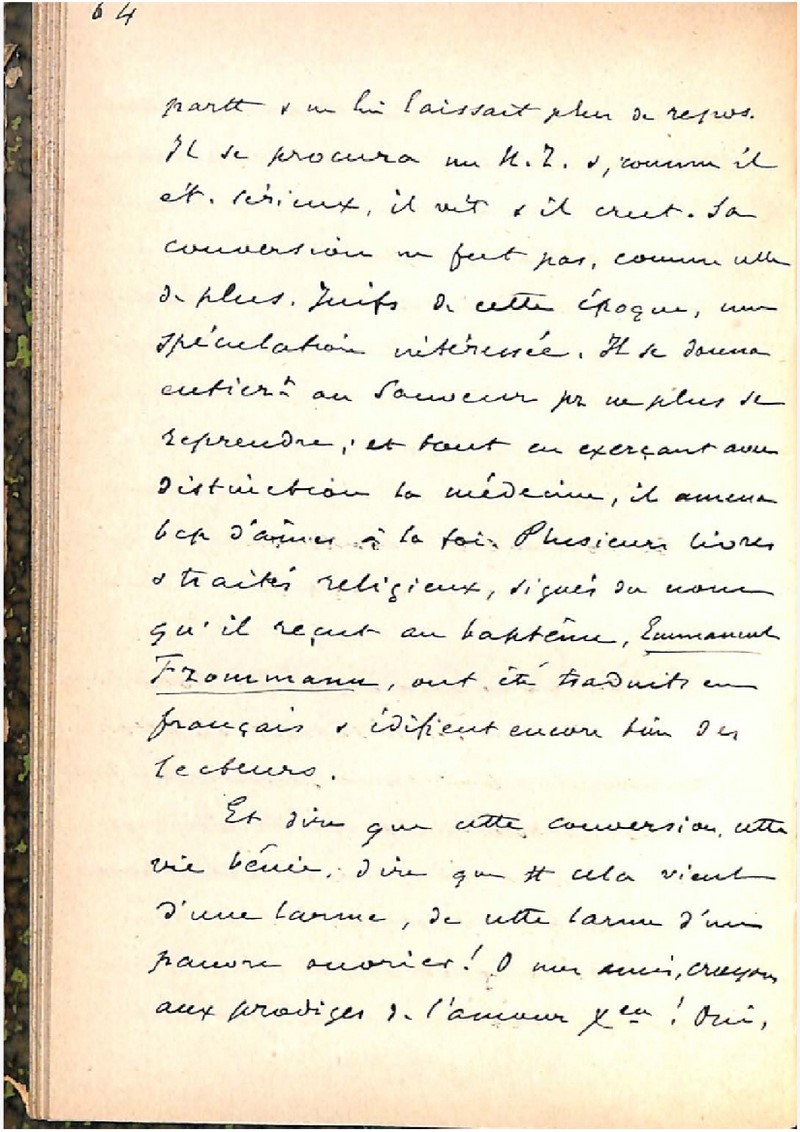 64
partt & ne lui laissait plus de repos.
Il se procura un N.T. &, comme il
ét. sérieux, il vit & il crut. Sa
conversion ne fut pas, comme celle
de plus. Juifs de cette époque, une
spéculation intéressée. Il se donna
entièrt au Sauveur pr ne plus se
reprendre; et tout en exerçant avec
distinction la médecine, il amena
bcp d'âmes à la foi. Plusieurs livres
& traités religieux, signés du nom
qu'il reçut au baptême, Emmanuel
Frommann, ont été traduits en
français & édifient encore bien des
lecteurs.
Et dire que cette conversion, cette
vie bénie, dire que tt cela vient
d'une larme, de cette larme d'un
pauvre ouvrier! O mes amis, croyons
aux prodiges de l'amour Xen! Oui,